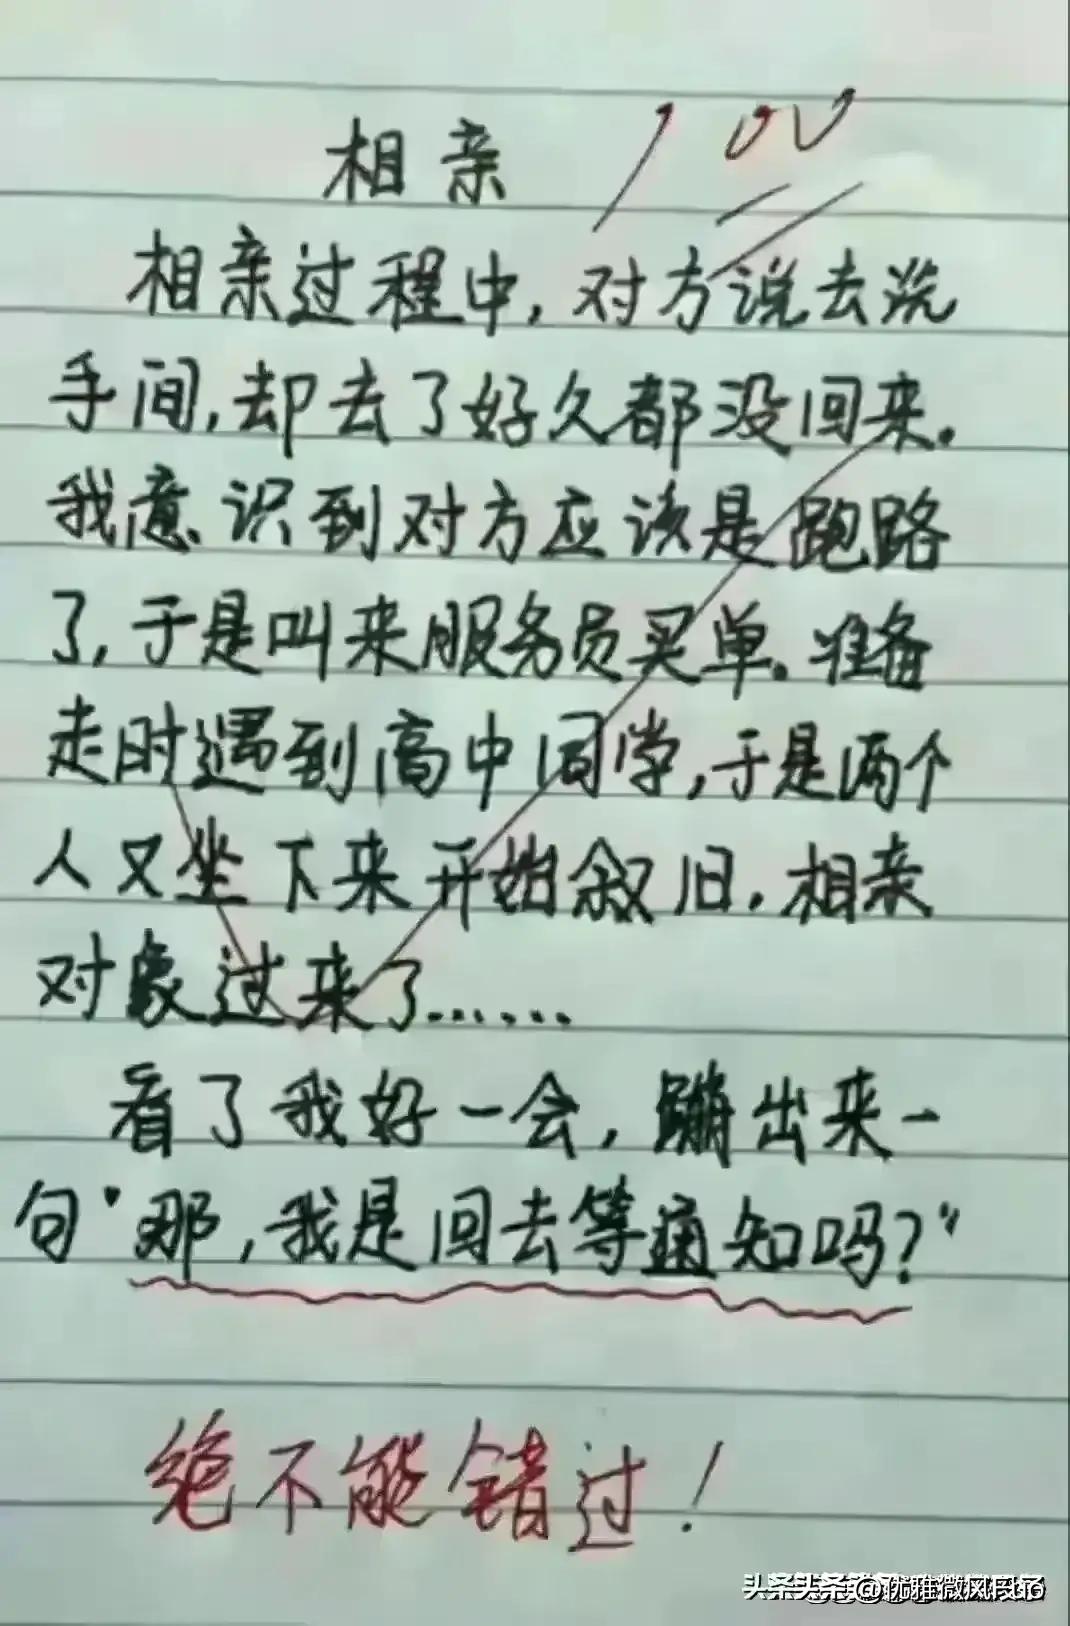 相亲 100
相亲过程中，对方说去洗
手间，却去了好久都没回来。
我意识到对方应该是跑路
了，于是叫来服务员买单。准备
走时遇到高中同学，于是两个
人又坐下来开始叙旧，相亲
对象过来了……
看了我好一会，蹦出来一
句“那，我是回去等通知吗？”
绝不能错过！
头条 @优雅微风